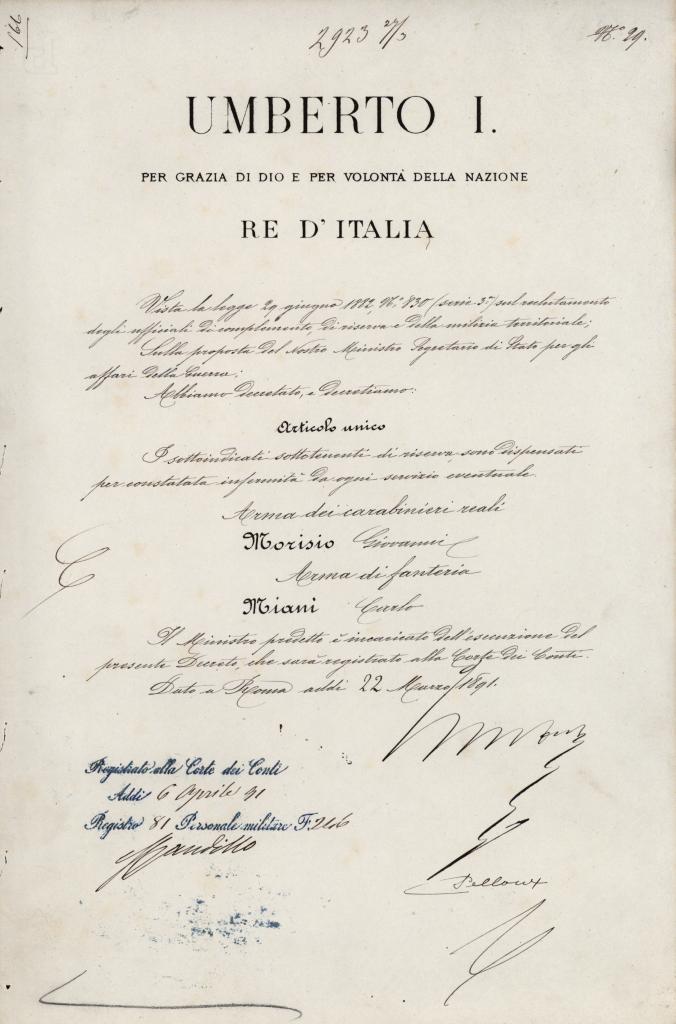 166
2923 27/3
N.° 29.
UMBERTO I.
PER GRAZIA DI DIO E PER VOLONTÀ DELLA NAZIONE
RE D'ITALIA
Vista la legge 29 giugno 1882, N.° 830 (serie 3ª) sul reclutamento
degli ufficiali di complemento, di riserva e della milizia territoriale;
Sulla proposta del Nostro Ministro Segretario di Stato per gli
affari della Guerra;
Abbiamo decretato, e decretiamo:
Articolo unico
I sottoindicati sottotenenti di riserva, sono dispensati
per constatata infermità da ogni servizio eventuale.
Arma dei carabinieri reali
Morisio Giovanni
Arma di fanteria
Miani Carlo
Il Ministro predetto è incaricato dell'esecuzione del
presente Decreto, che sarà registrato alla Corte dei Conti.
Dato a Roma addì 22 Marzo 1891.
Umberto
Registrato alla Corte dei Conti
Addì 6 Aprile 91
Registro 81 Personale militare F. 246
Pelloux